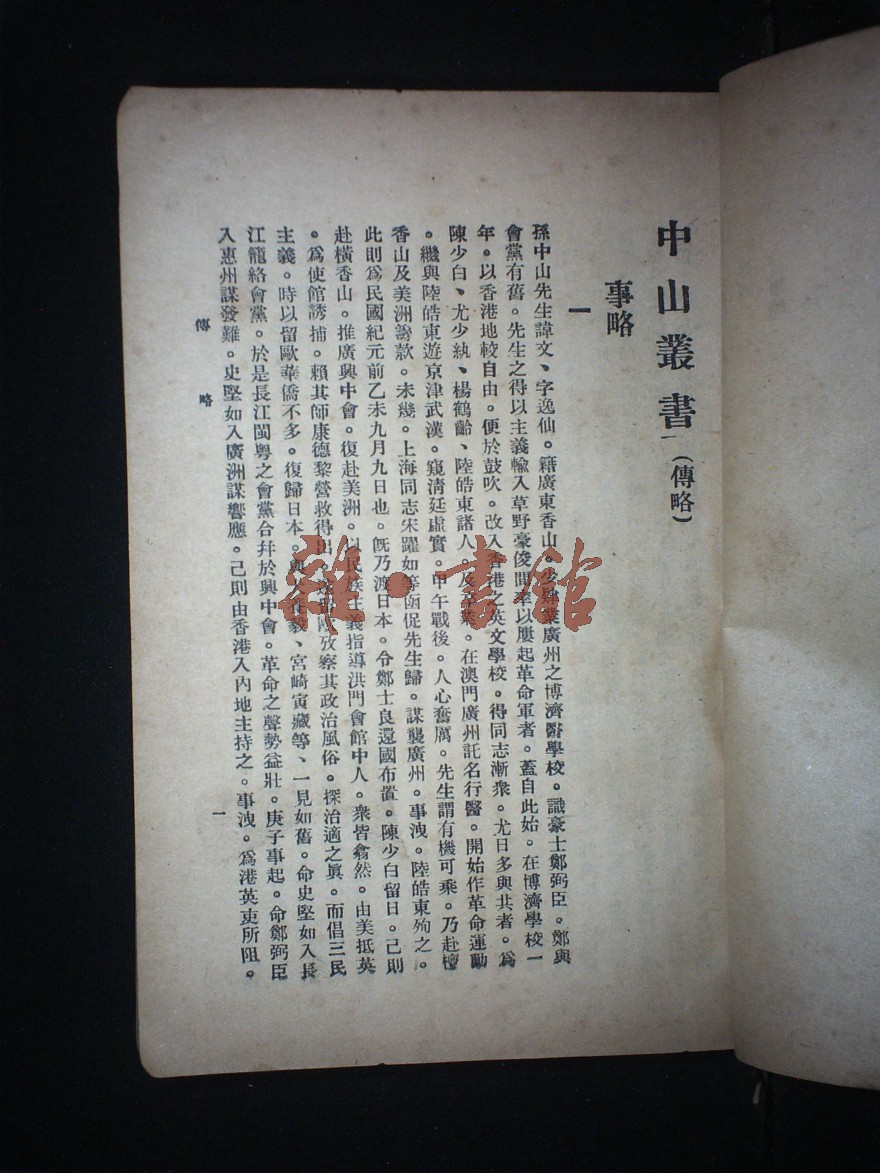 中山叢書一(傳略)
事略
一
孫中山先生諱文、字逸仙。籍廣東香山。少肄業廣州之博濟醫學校。識豪士鄭弼臣。鄭與
會黨有舊。先生之得以主義輸入草野豪俊間卒以屢起革命軍者。蓋自此始。在博濟學校一
年。以香港地較自由。便於鼓吹。改入香港之英文學校。得同志漸衆。尤日多與共者。爲
陳少白、尤少紈、楊鶴齡、陸皓東諸人。及卒業。在澳門廣州託名行醫。開始作革命運動
。繼與陸皓東遊京津武漢。窺淸廷虛實。甲午戰後。人心奮厲。先生謂有機可乘。乃赴檀
香山及美洲籌款。未幾。上海同志宋躍如等函促先生歸。謀襲廣州。事洩。陸皓東殉之。
此則爲民國紀元前乙未九月九日也。旣乃渡日本。令鄭士良還國布置。陳少白留日。己則
赴橫香山。推廣興中會。復赴美洲。以民族主義指導洪門會館中人。衆皆翕然。由美抵英
。爲使館誘捕。賴其師康德黎營救得出。攷察其政治風俗。探治適之眞。而倡三民
主義。時以留歐華僑不多。復歸日本。與犬養毅、宮崎寅藏等、一見如舊。命史堅如入長
江籠絡會黨。於是長江閩粵之會黨合幷於興中會。革命之聲勢益壯。庚子事起。命鄭弼臣
入惠州謀發難。史堅如入廣洲謀響應。己則由香港入內地主持之。事洩。爲港英吏所阻。
傳略
一
雜·書館